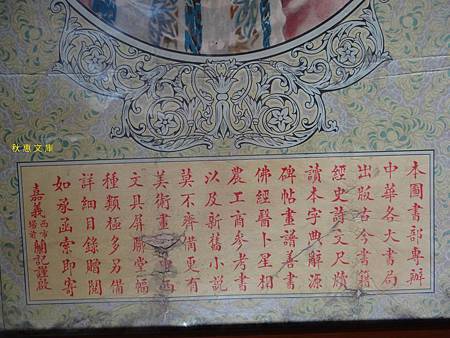 本圖書部專辦
中華各大書局
出版古今書籍
經史詩文尺牘
讀本字典辭源
碑帖畫譜善書
佛經醫卜星相
農工商參考書
以及新舊小說
莫不齊備更有
美術畫西
文具屏聯堂幅
種類極多另備
詳細目錄贈閱
如承函索即寄
嘉義西市場前蘭記謹啟
秋惠文庫